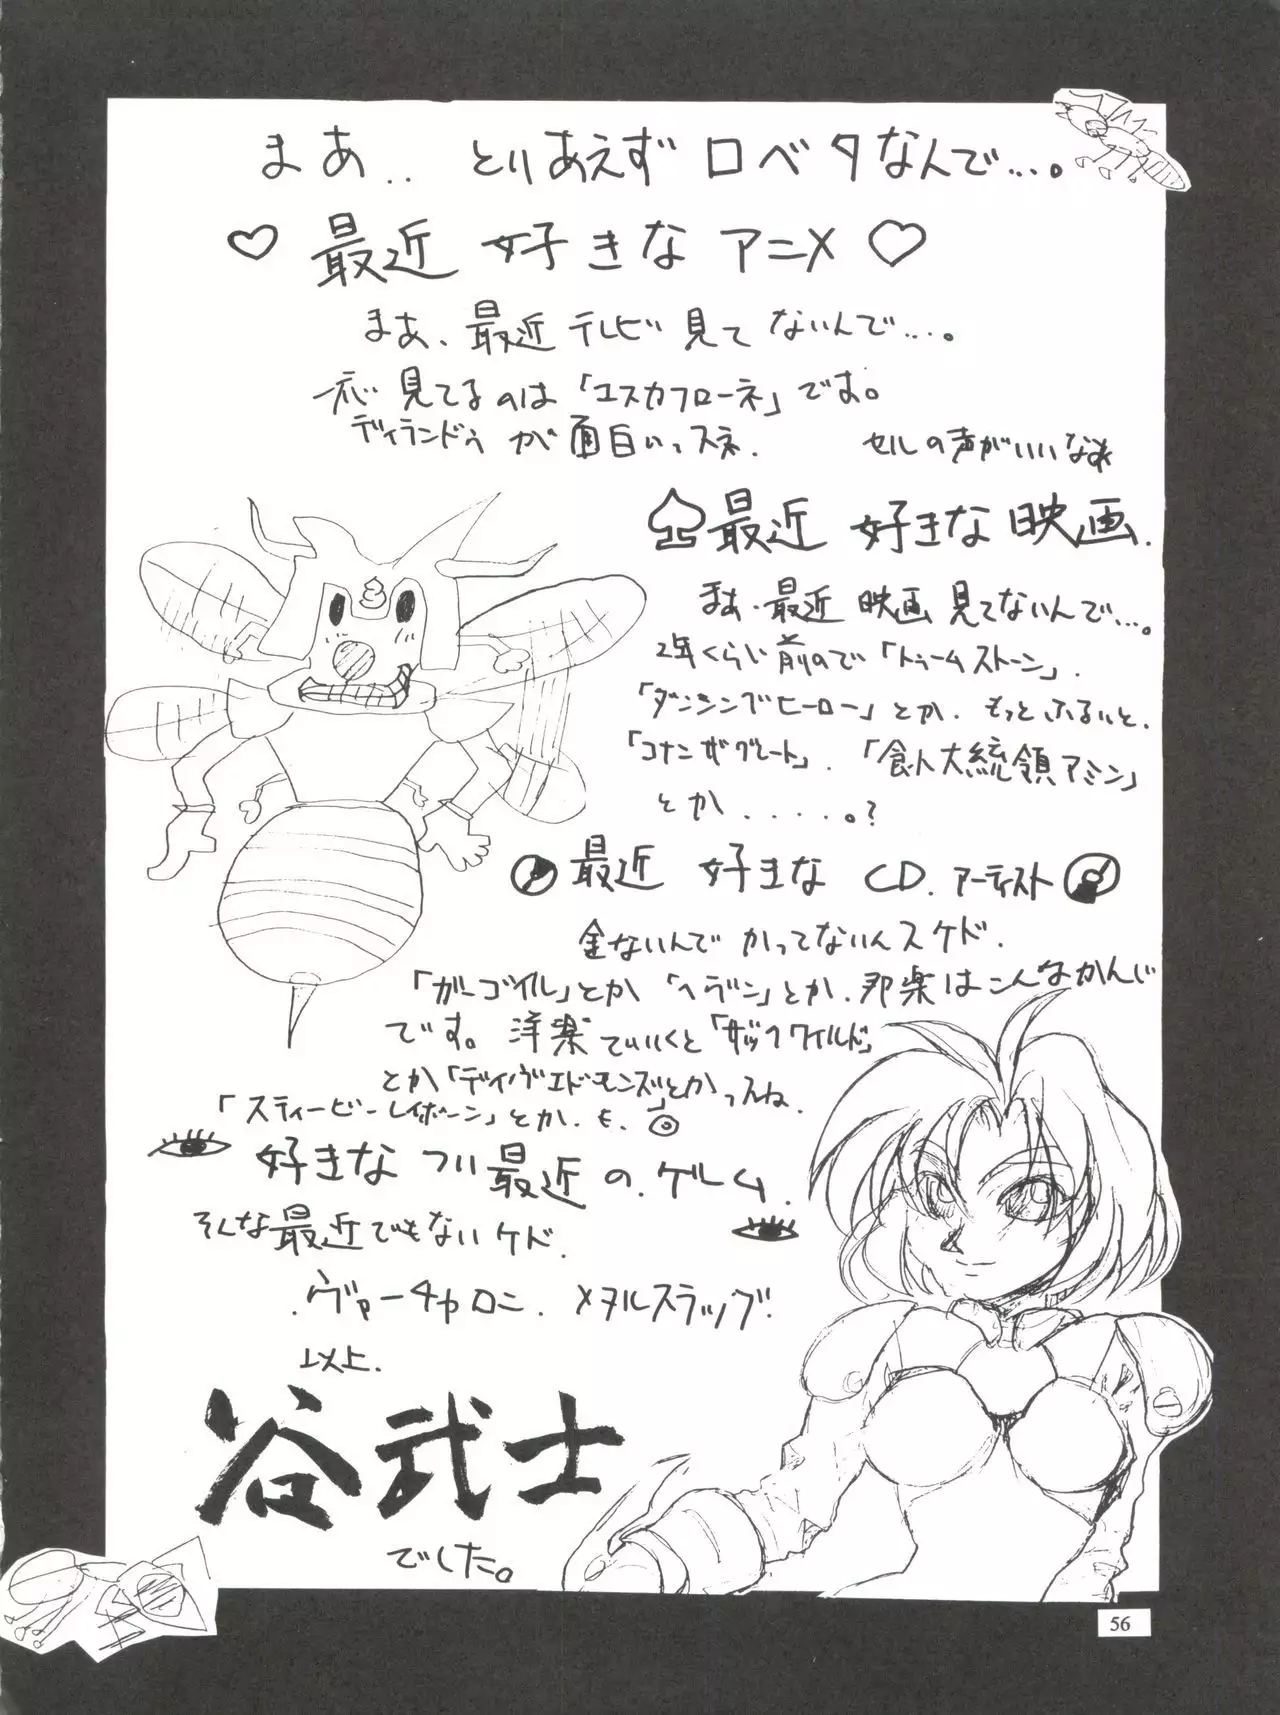 まあ.. とりあえずロベタなんで....。
♡ 最近 好きな アニメ ♡
まあ、最近テレビ見てないんで....。
一応 見てるのは「エスカフローネ」です。
ディランドゥが面白いっスネ.
セルの声がいいなあ
♤最近 好きな映画.
まあ、最近 映画見てないんで....。
2年くらい前ので「トゥームストーン」.
「ダンシングヒーロー」とか. もっとふるいと.
「コナンザグレート」.「食人大統領アミン」
とか.....。?
最近 好きな CD.アーティスト
金ないんで かってないんスケド.
「ガーゴイル」とか「ヘヴン」とか.邦楽はこんなかんじ
です。洋楽でいくと「ザックワイルド」
とか「デイヴエドモンズ」とかっスね.
「スティービーレイボーン」とか.も.◎
好きな つい最近の.ゲーム.
そんな最近でもないケド.
.ヴァーチャロン. メタルスラッグ.
以上.
谷武士
でした。
56